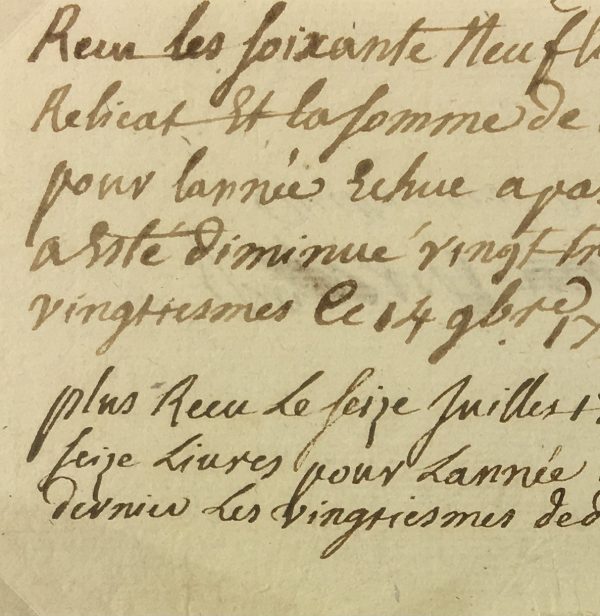 Receu les soixante Neuf
Relicat Et la somme de
pour lannée Echue a
a Esté diminué vingt
vingtiesmes le 14 9bre 17
plus Receu Le seize Juilles 17
seize Livres pour Lannée
dernier Les vingtiesmes